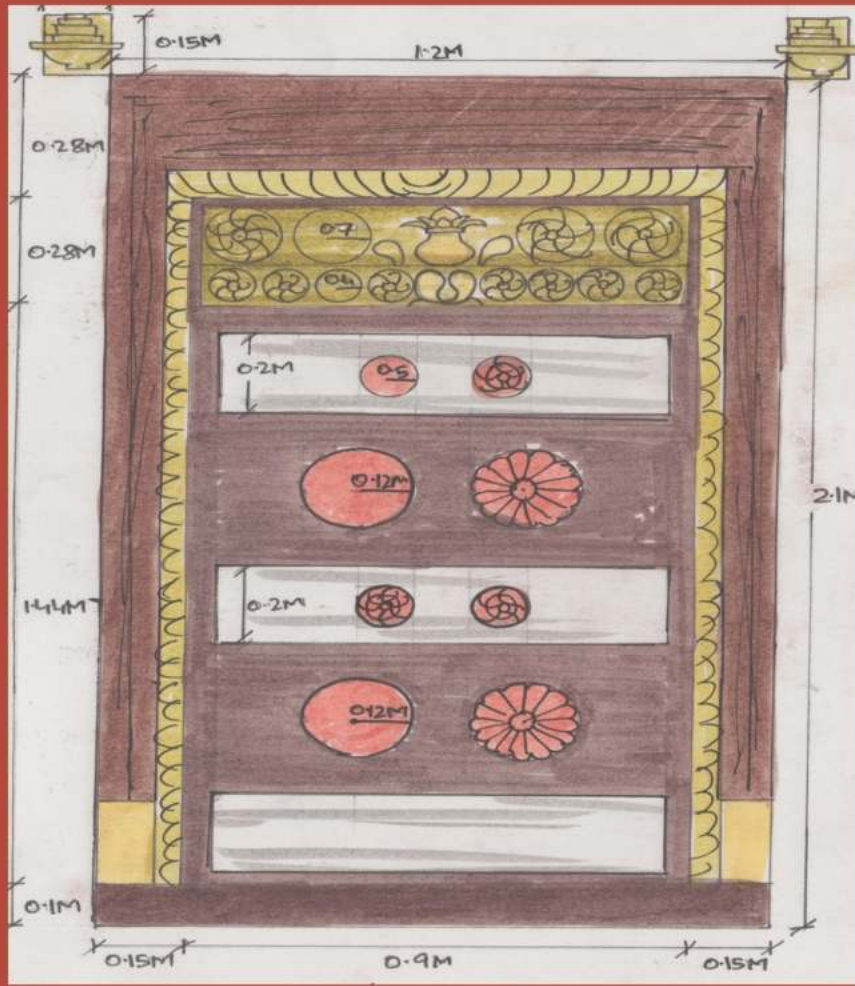 0.15M
1.2M
0.28M
0.28M
0.7
0.4
0.2M
0.5
0.12M
2.1M
1.44M
0.2M
0.12M
0.1M
0.15M
0.9M
0.15M